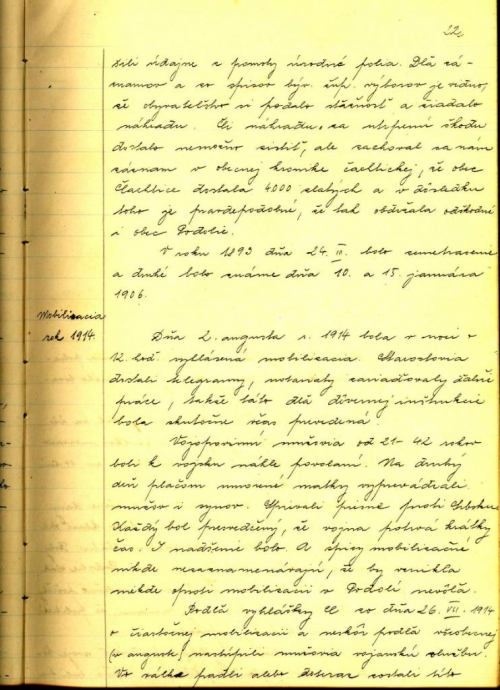 22.
žili údajne z pomoty úrodné polia. Dľa zá-
znamov a zo spisov býv. župn. výborov je vidno,
že obyvateľstvo si podalo sťažnosť a žiadalo
náhradu. Či náhradu za utrpenú škodu
dostalo nemožno zistiť, ale zachoval sa nám
záznam v obecnej kronike čachtickej, že obec
Čachtice dostala 4000 zlatých a v dôsledku
toho je pravdepodobné, že tak obdržala odškodné
i obec Podolie.
V roku 1893 dňa 24. II. bolo zemetrasenie
a druhé bolo známe dňa 10. a 15. januára
1906.
Mobilizacia
rok 1914.
Dňa 2. augusta r. 1914 bola v noci o
12. hod. vyhlásená mobilizacia. Starostovia
dostali telegrammy, notariaty zariaďovaly ďalšie
práce, takže táto dľa dôvernej inštrukcie
bola skutočne včas prevedená.
Vojnopovinní mužovia od 21-42 rokov
boli k vojsku náhle povolaní. Na druhý
deň plačom unovené matky vyprevádzali
mužov i synov. Spievali piesne proti Srbsku.
Každý bol presvedčený, že vojna potrvá krátky
čas. I nadšenie bolo. A spisy mobilizačné
nikde nezaznamenávajú, že by vznikla
niekde proti mobilizacii v Podolí nevôľa.
Podľa vyhlášky zo dňa 26. VII. 1914
o čiastočnej mobilizacii a neskôr podľa všeobecnej
(v auguste) nastúpili mužovia vojanskú službu.
Vo válke padli alebo doteraz zostali títo